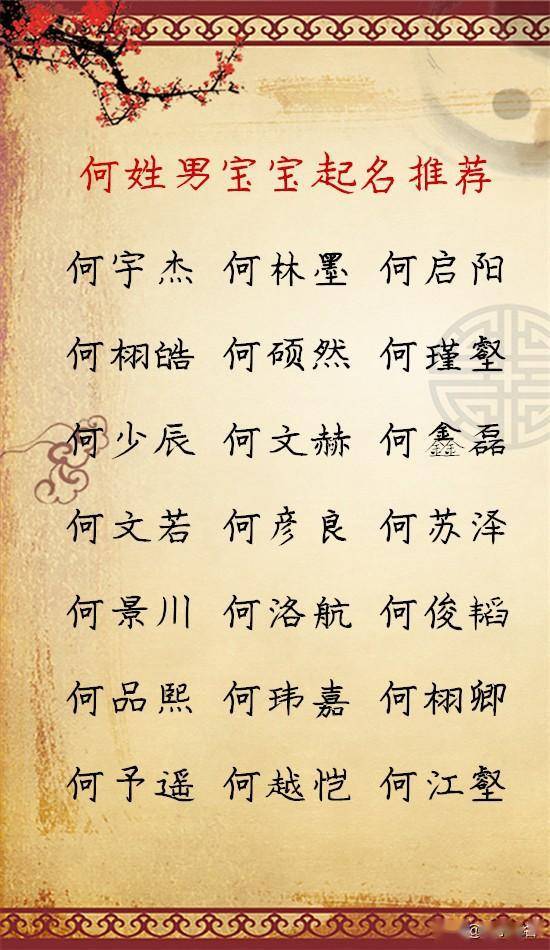 何姓男宝宝起名推荐
何宇杰 何林墨 何启阳
何栩皓 何硕然 何瑾壑
何少辰 何文赫 何鑫磊
何文若 何彦良 何苏泽
何景川 何洛航 何俊韬
何品熙 何玮嘉 何栩卿
何予遥 何越恺 何江壑